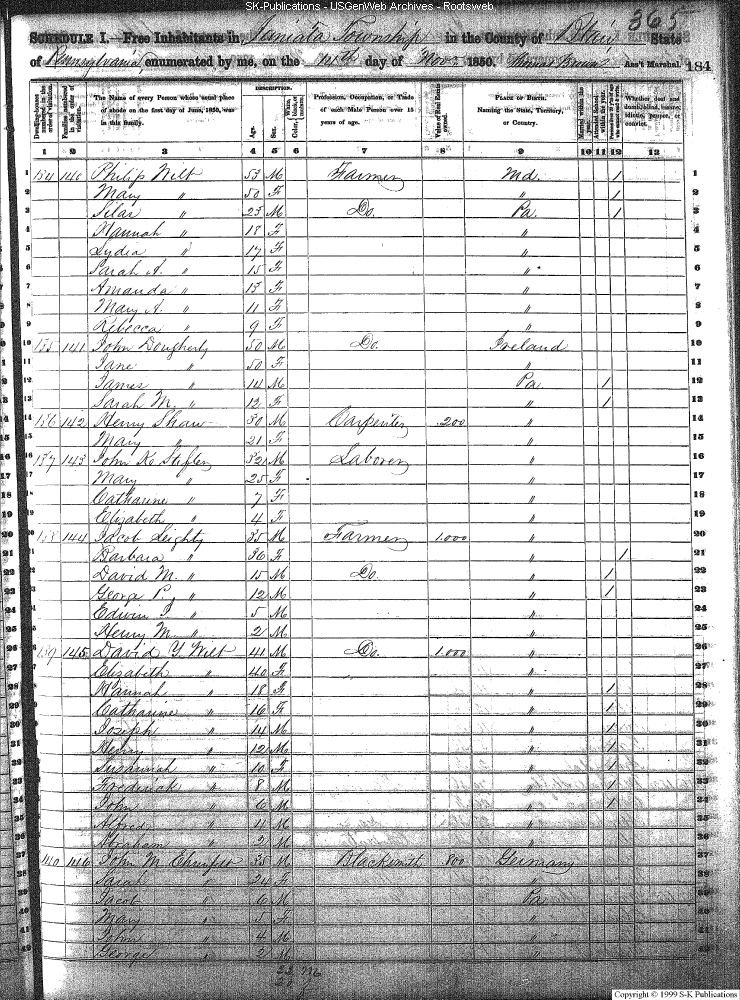 SK-Publications - USGenWeb Archives - Rootsweb
365
SCHEDULE I.—Free Inhabitants in Juniata Township in the County of Blair State
of Pennsylvania enumerated by me, on the 14th day of Novr 1850. Ass't Marshal. 184
DESCRIPTION.
Dwelling-houses numbered in the order of visitation.
Families numbered in the order of visitation.
The Name of every Person whose usual place of abode on the first day of June, 1850, was in this family.
Age.
Sex.
White, black, or mulatto.
Profession, Occupation, or Trade of each Male Person over 15 years of age.
Value of Real Estate owned.
PLACE OF BIRTH. Naming the State, Territory, or Country.
Married within the year.
Attended School within the year.
Persons over 20 y'rs of age who cannot read & write.
Whether deaf and dumb, blind, insane, idiotic, pauper, or convict.
1 2 3 4 5 6 7 8 9 10 11 12 13
1 134 140 Philip Wilt 53 M Farmer Md. / 1
2 Mary " 50 F " / 2
3 Silas " 23 M Do. Pa. / 3
4 Hannah " 18 F " 4
5 Lydia " 17 F " 5
6 Sarah A. " 15 F " 6
7 Amanda " 13 F " 7
8 Mary A. " 11 F " 8
9 Rebecca " 9 F " 9
10 135 141 John Dougherty 50 M Do. Ireland 10
11 Jane " 50 F " 11
12 James " 14 M Pa. / 12
13 Sarah M. " 12 F " / 13
14 136 142 Henry Shaw 30 M Carpenter 200 " 14
15 Mary " 21 F " 15
16 137 143 John K. Stifler 32 M Laborer " 16
17 Mary " 25 F " 17
18 Catharine " 7 F " 18
19 Elizabeth " 4 F " 19
20 138 144 Jacob Leighty 35 M Farmer 1.000 " 20
21 Barbara " 36 F " / 21
22 David M. " 15 M Do. " / 22
23 George P. " 12 M " / 23
24 Edwin " 5 M " 24
25 Henry M. " 2 M " 25
26 139 145 David Y. Wilt 41 M Do. 1.000 " 26
27 Elizabeth " 40 F " 27
28 Hannah " 18 F " / 28
29 Catharine " 16 F " / 29
30 Joseph " 14 M " / 30
31 Henry " 12 M " / 31
32 Susannah " 10 F " / 32
33 Frederick " 8 M " / 33
34 John " 6 M " / 34
35 Alfred " 4 M " 35
36 Abraham " 2 M " 36
37 140 146 John M. 35 M Blacksmith 800 Germany 37
38 Sarah " 24 F " 38
39 Jacob " 6 M Pa. 39
40 Mary " 5 F " 40
41 John " 4 M " 41
42 George " 2 M " 42
22 M
20 F
Copyright © 1999 S-K Publications